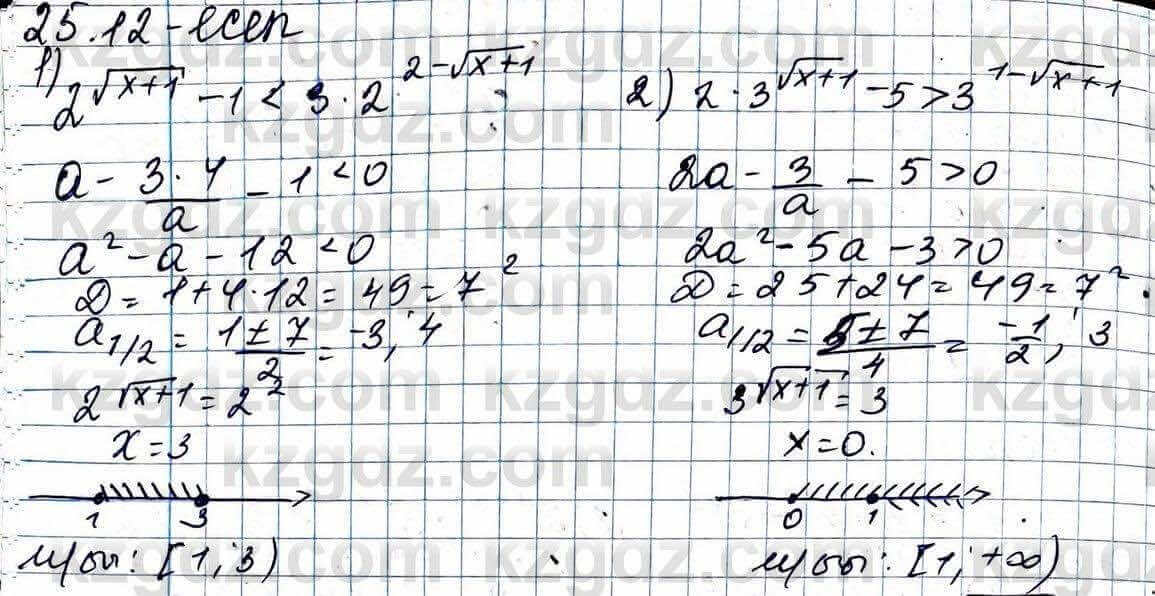 25.12-есеп
1) 2^√(x+1) - 1 < 3·2^(2-√(x+1))
a - (3·4)/a - 1 < 0
a² - a - 12 < 0
D = 1+4·12 = 49 = 7²
a₁/₂ = (1±7)/2 = -3; 4
2^√(x+1) = 2²
x = 3
1 3
Ж/бы: [1; 3)
2) 2·3^√(x+1) - 5 > 3^(1-√(x+1))
2a - 3/a - 5 > 0
2a² - 5a - 3 > 0
D = 25+24 = 49 = 7².
a₁/₂ = (5±7)/4 = -1/2; 3
3^√(x+1) = 3
x = 0.
0 1
Ж/бы: [1; +∞)
kzgdz.com